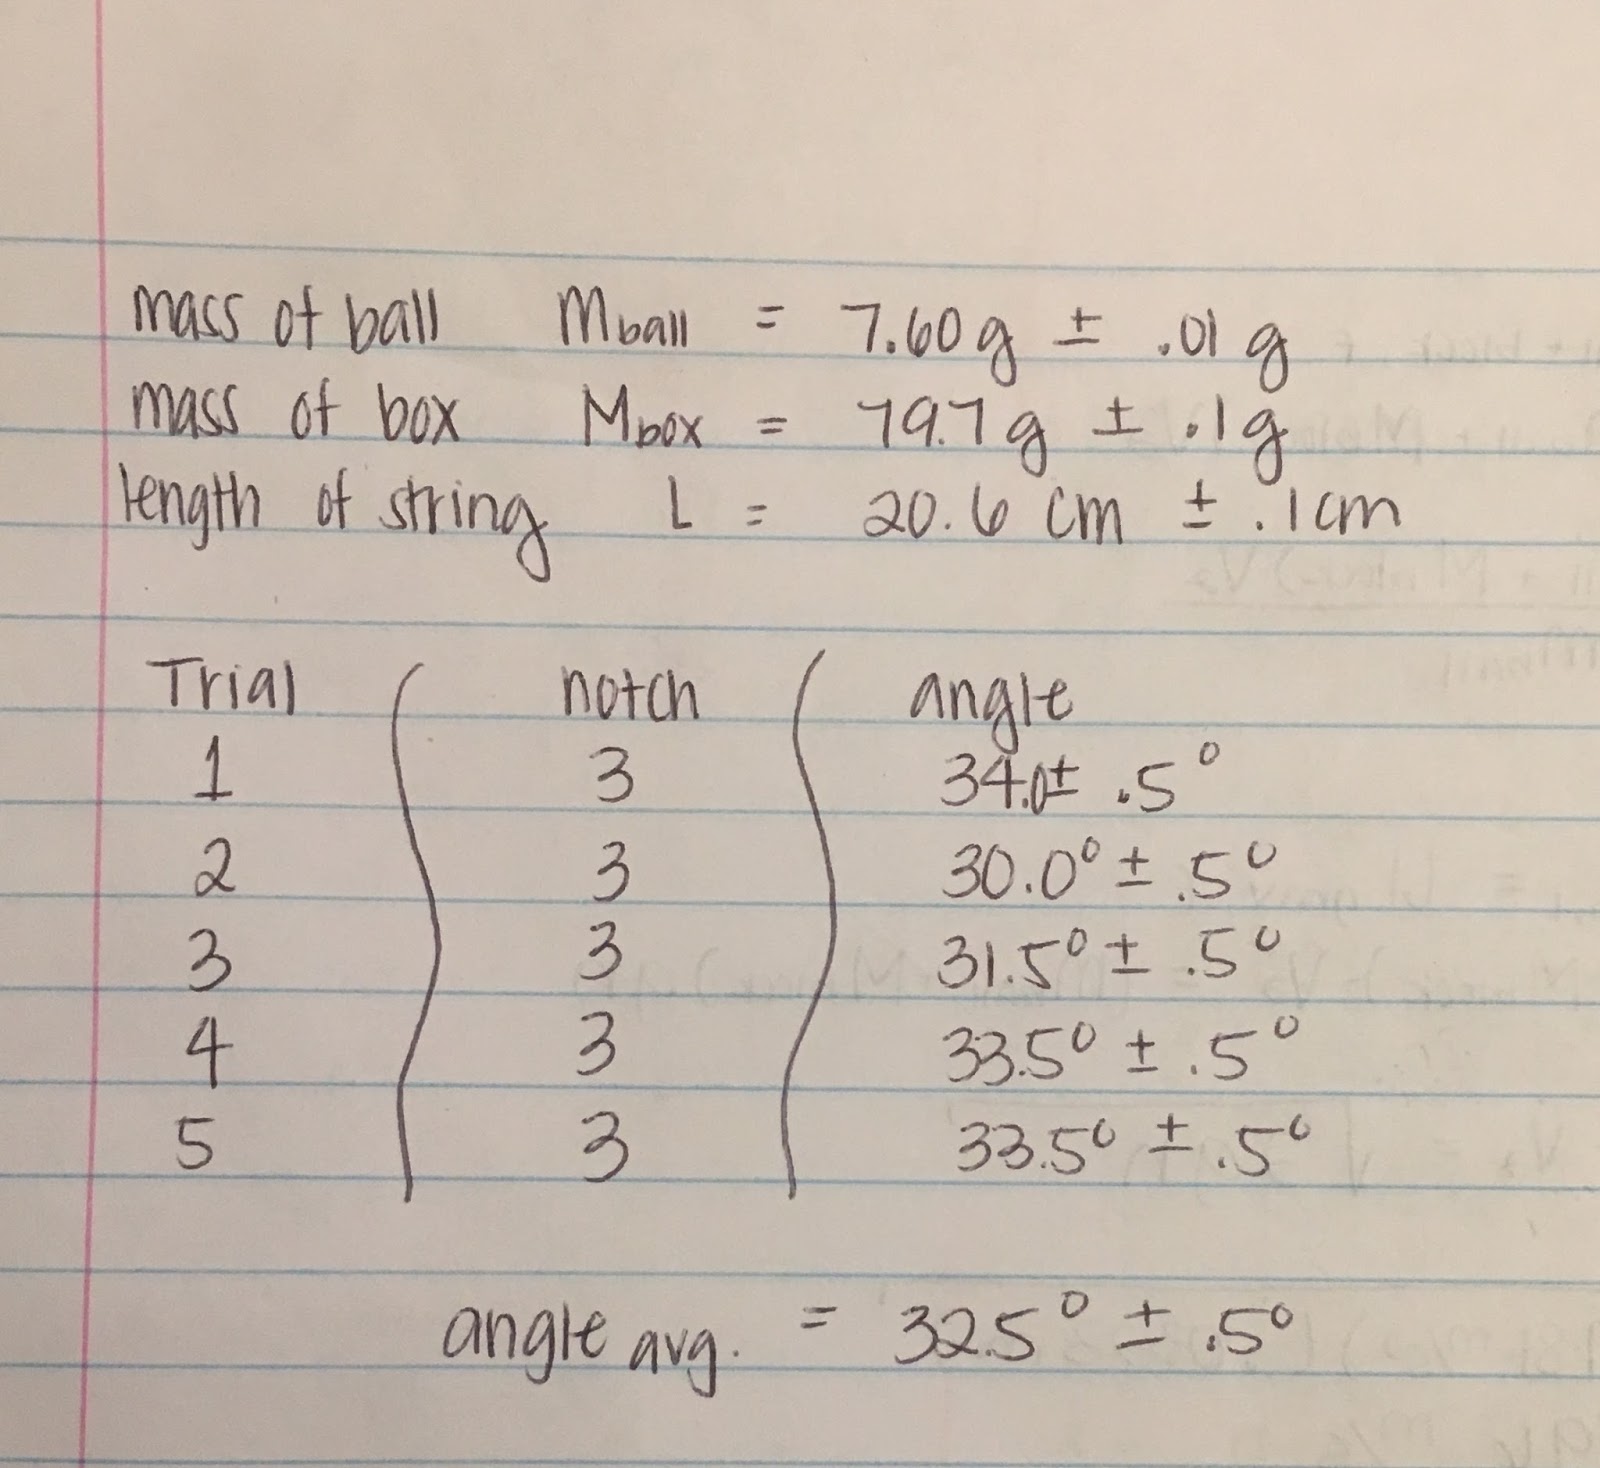 mass of ball Mball = 7.60g ± .01g
mass of box Mbox = 79.7g ± .1g
length of string L = 20.6 cm ± .1cm
Trial notch angle
1 3 34.0± .5°
2 3 30.0° ± .5°
3 3 31.5° ± .5°
4 3 33.5° ± .5°
5 3 33.5° ± .5°
angle avg. = 32.5° ± .5°